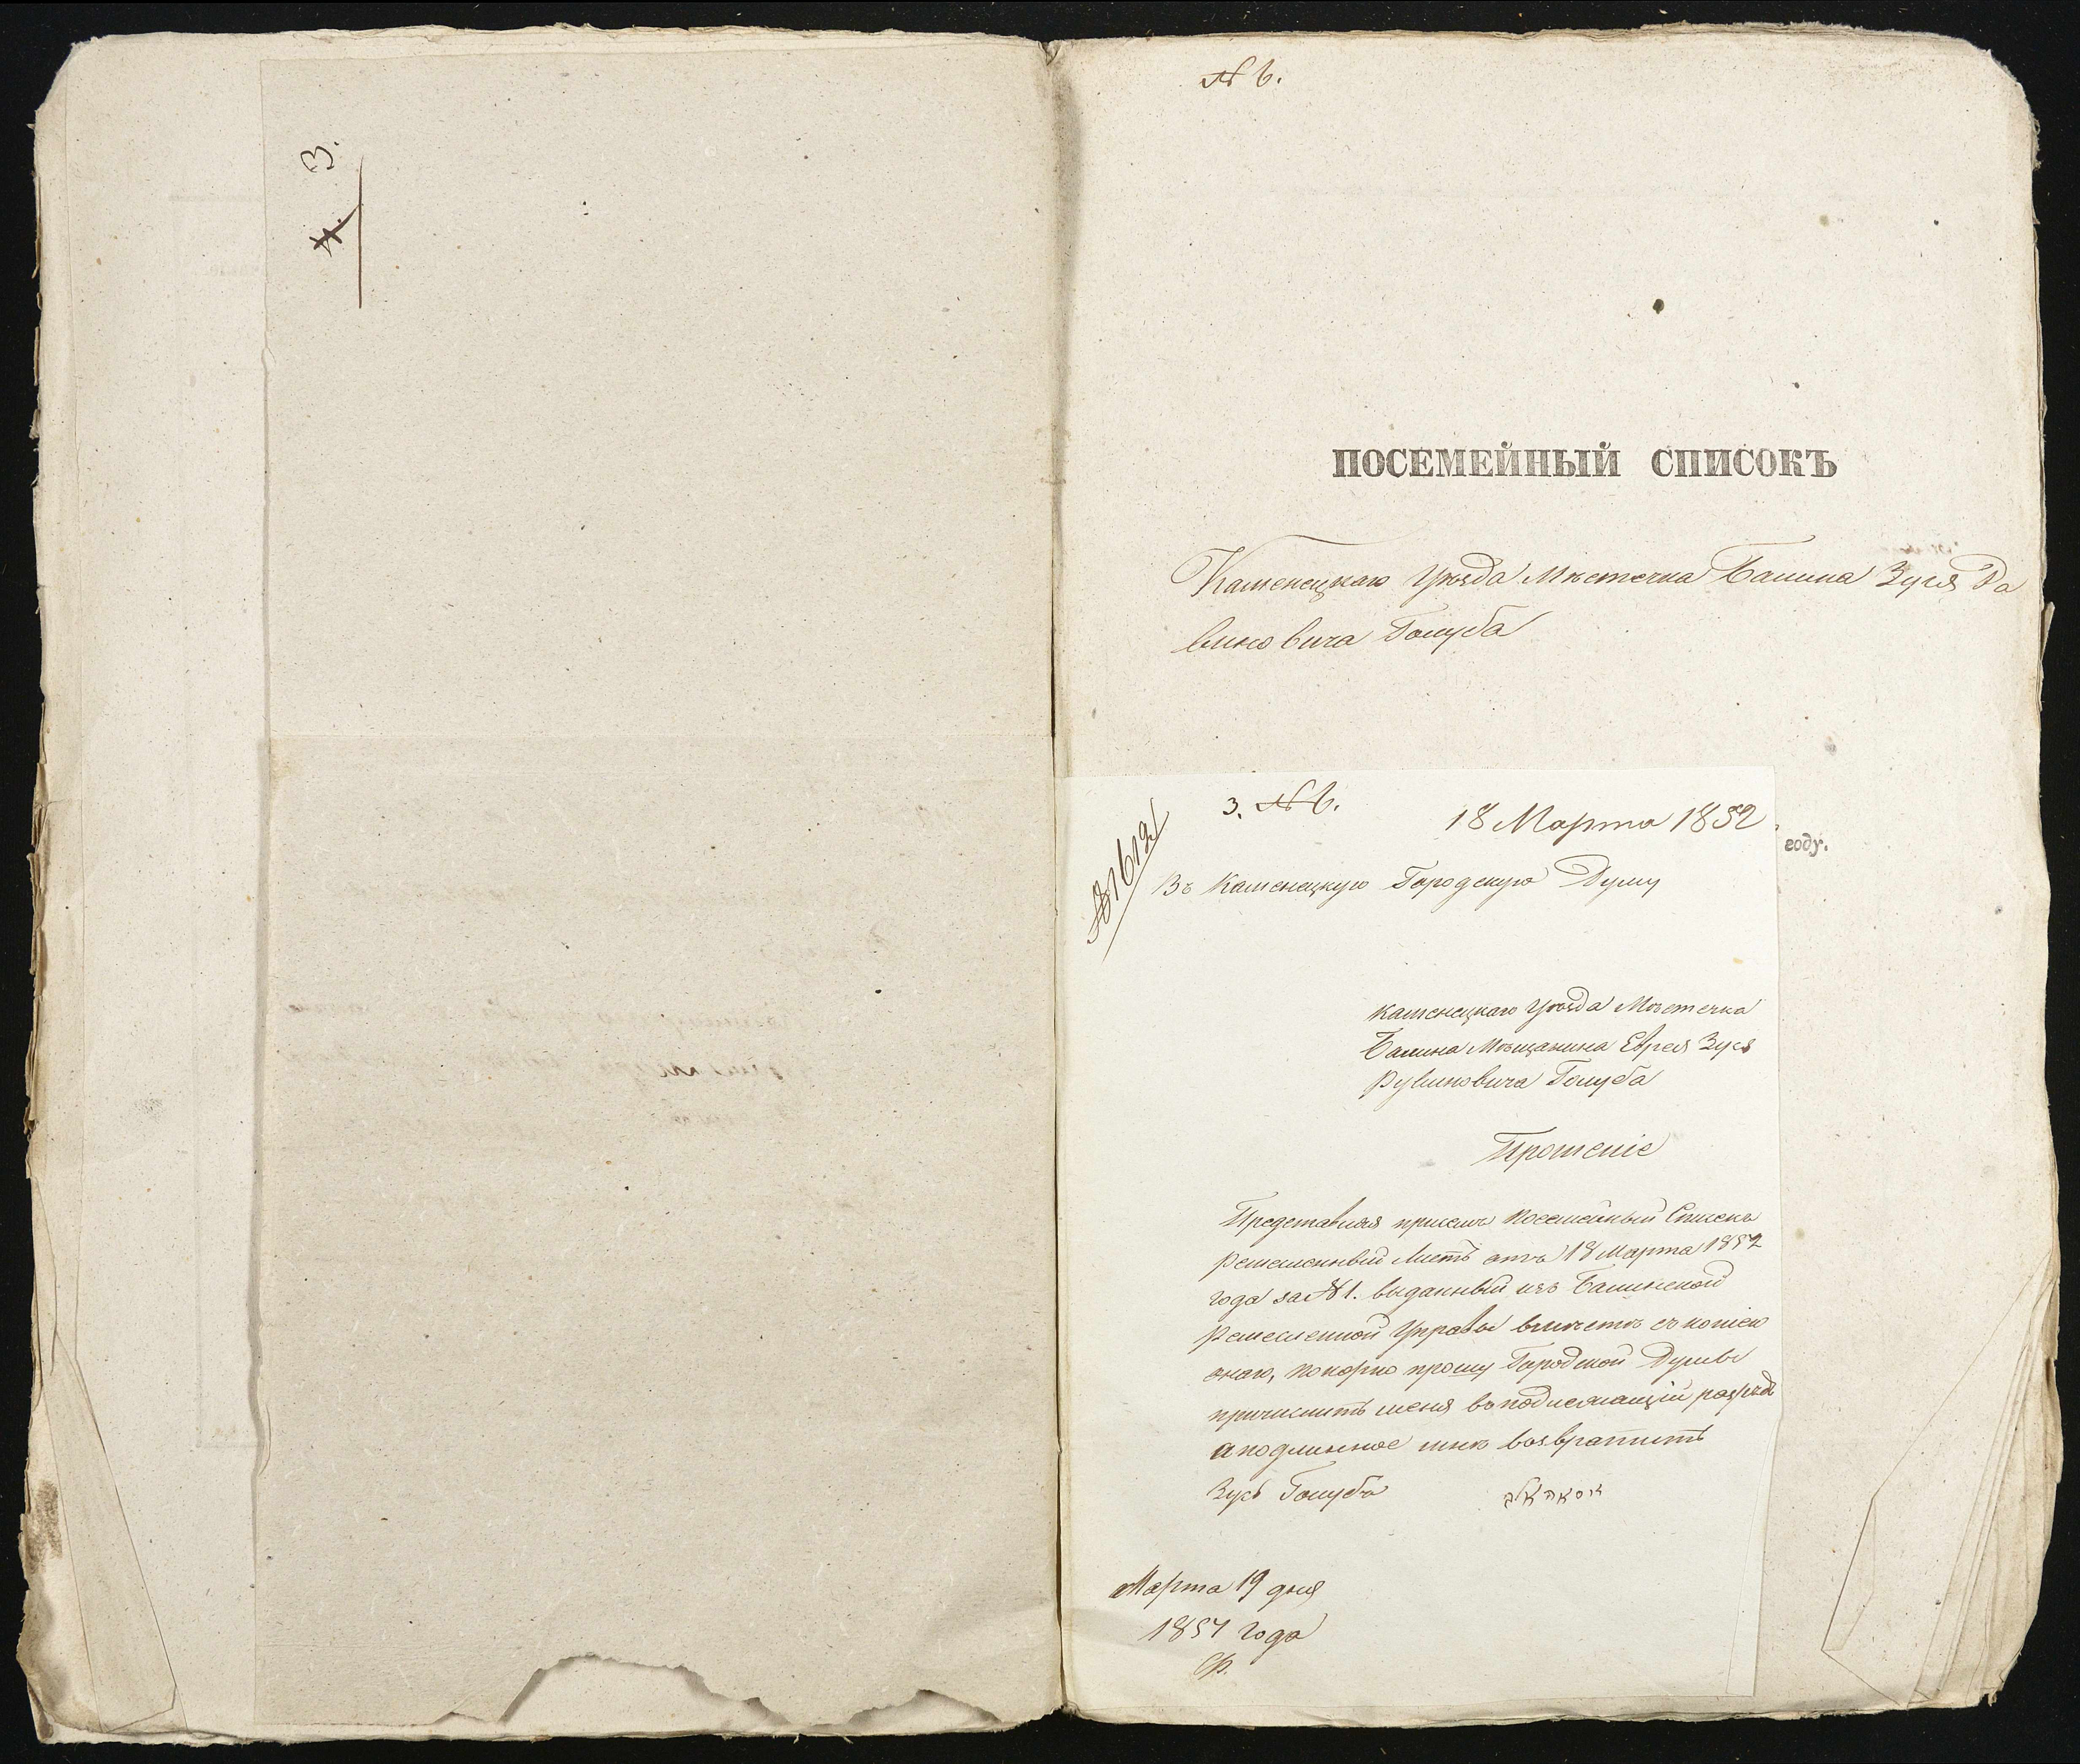 3.
№ 6.
ПОСЕМЕЙНЫЙ СПИСОКЪ
Каменецкаго Уѣзда Мѣстечка Балина Зуся Ра
виновича Голуба
году.
3. № 6.
18 Марта 1852
№ 1612
Въ Каменецкую Городскую Думу
Каменецкаго Уѣзда Мѣстечка
Балина Мѣщанина Еврея Зуся
Рувиновича Голуба
Прошеніе
Представляя присемъ посемейный Списокъ
ремесленный Листъ отъ 18 Марта 1852
года за № 1. выданный изъ Балинской
Ремесленной Управы вмѣстѣ съ копіею
онаго, покорно прошу Городской Думы
причислить меня въ подлежащій разрядъ
а подлинное мнѣ возвратить
Зусь Голубъ
Марта 19 дня
1852 года